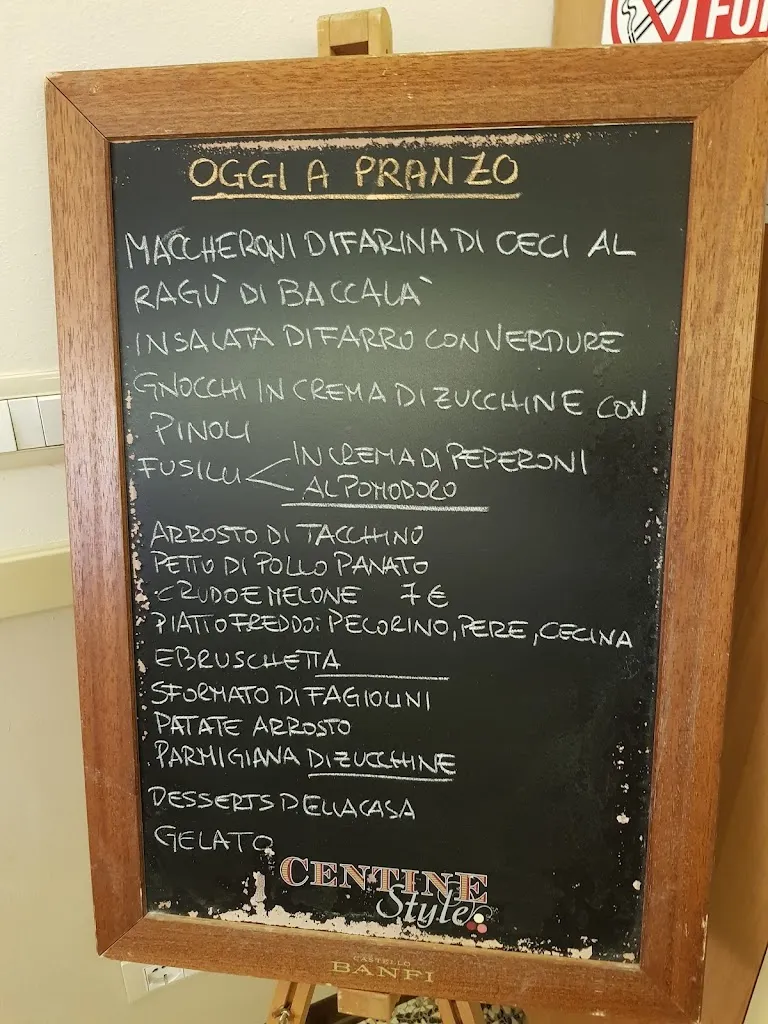 FU
OGGI A PRANZO
MACCHERONI DI FARINA DI CECI AL
RAGÙ DI BACCALA'
INSALATA DI FARRO CON VERDURE
GNOCCHI IN CREMA DI ZUCCHINE CON
PINOLI
FUSILLI < IN CREMA DI PEPERONI
AL POMODORO
ARROSTO DI TACCHINO
PETTO DI POLLO PANATO
CRUDO E MELONE 7 €
PIATTO FREDDO: PECORINO, PERE, CECINA
E BRUSCHETTA
SFORMATO DI FAGIOLINI
PATATE ARROSTO
PARMIGIANA DI ZUCCHINE
DESSERTS DELLA CASA
GELATO
CENTINE
Style
CASTELLO
BANFI